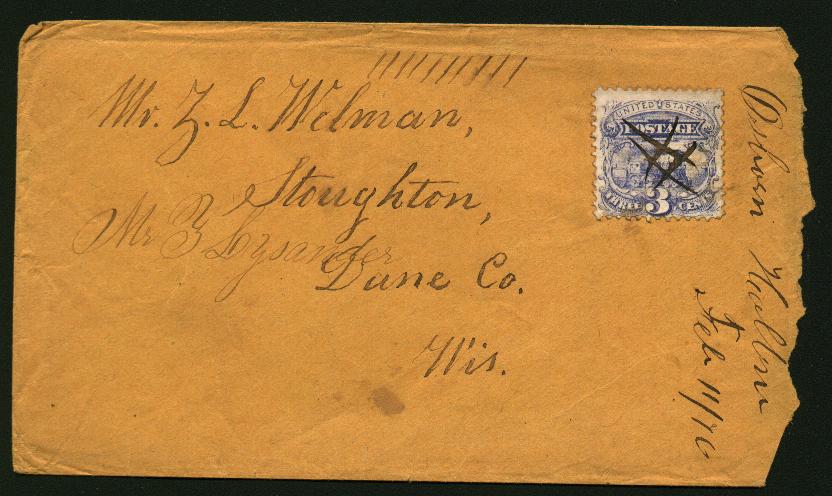 Mr. Z. L. Welman,
Stoughton,
Mr Z Lysander
Dane Co.
Wis.
UNITED STATES
POSTAGE
THREE 3 CENTS
Osborn
Feb 11/70